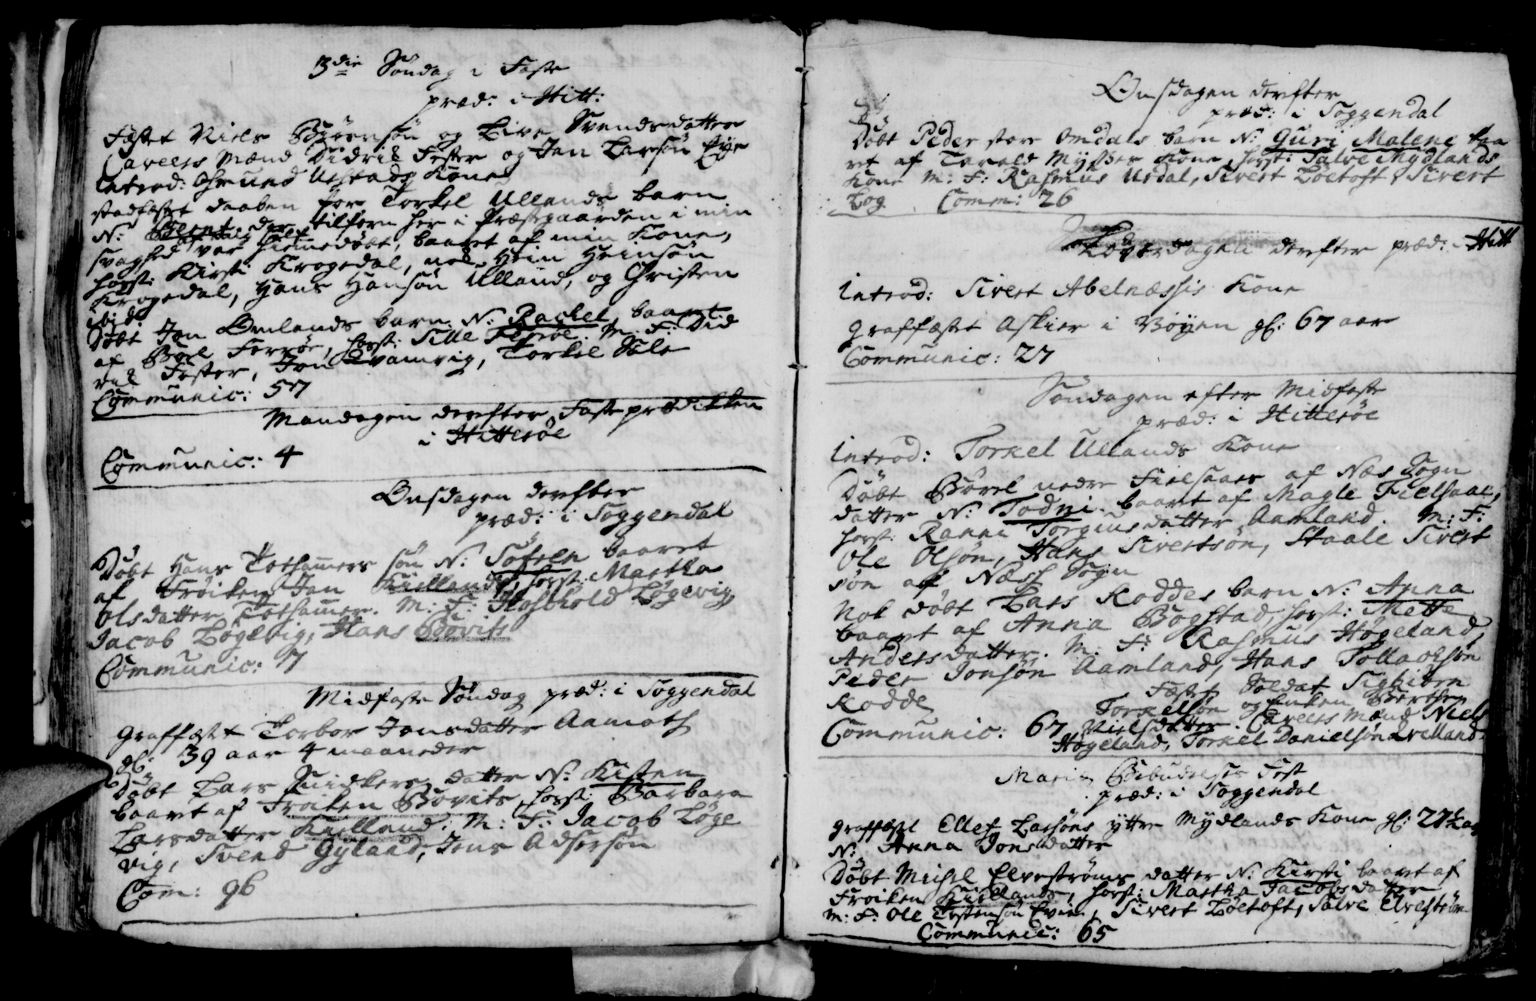 3die Søndag i Faste
præd: i Hitt:
Fæstet Niels Børresøn og Live Svendsdatter
Caveets Mænd Didrik Fester og Jan Larsøn Eye
Introd: Osmund Ulstads Kone
stadfæstet daaben for Torkel Ullands barn
N: Berent der tilforn her i Præstegaarden i min
svaghed var hiemedøbt, baaret af min Kone,
horst: Kirsti Krogedal, M: F: Hein Heinsøn
Krogedal, Hans Hansøn Ulland, og Christen
ibid:
Døbt Jon Omlands barn N: Rachel, baaret
af Boel Ferrøe, horst: Sille Ferrøe, M: F: Did
rik Fester, Jon Qvamvig, Torkel Dale
Communic: 57
Mandagen derefter Faste prædikken
i Hitterøe
Communic: 4
Onsdagen derefter
præd: i Soggendal
Døbt Hans Tothammers søn N: Søfren baaret
af Frøiken Jan Kiellands, horst: Martha
Olsdatter Tothammer. M: F: Floshold Løgevig
Jacob Løgevig, Hans Bovits
Communic: 7
Midfaste Søndag præd: i Soggendal
Graffæstet Torbor Jonsdatter Aamoth
gl: 39 aar 4 maaneder
Døbt Lars Snidkers datter N: Kisten
baaret af Frøiken Bovits, horst: Barbara
Larsdatter Kielland. M: F: Jacob Løge
vig, Svend Gyland, Jens Adsersøn
Com: 96
Onsdagen derefter
præd: i Soggendal
Døbt Peder store Omdals barn N: Guri Malene baa
ret af Tarald Myssers Kone, horst: Salve Mydlands
Kone M: F: Rasmus Urdal, Sivert Løetoft, Sivert
Log Comm: 26
Løverdagen derefter præd: i Hitt
Introd: Sivert Abelnæssis Kone
Graffæstet Askier i Bøyen gl: 67 aar
Communic: 27
Søndagen efter Midfaste
præd: i Hitterøe
Introd: Torkel Ullands Kone
Døbt Børel nedre Fielsaaes af Næs Sogn
datter N: Todni baaret af Magle Fielsaae,
horst: Ranni Torgiusdatter Aamland. M: F:
Ole Olsøn, Hans Sivertsøn, Staale Sivert
søn af Næss Sogn
Nok døbt Lars Roddes barn N: Anna
baaret af Anna Bogstad, horst: Mette
Andersdatter. M: F: Rasmus Høgeland,
Peder Jonsøn Aamland, Hans Tollaksøn
Rodde
Fæstet Soldat Sigbiørn
Torkelsøn og Enken Berthe
Communic: 67 Nielsdatter. Caveets Mænd Niels
Høgeland, Torkel Danielsøn Qvelland
Mariæ Bebudelses Fest
præd: i Soggendal
Graffæstet Ellef Larsøns ytre Mydlands Kone gl: 27½ aar
N: Anna Jonsdatter
Døbt Michel Elvestrøms datter N: Kirsti baaret af
Frøiken Kiellands, horst: Martha Jacobsdatter
M: F: Ole Torstensøn Evie, Sivert Løetoft, Salve Elvestrøm
Communic: 65